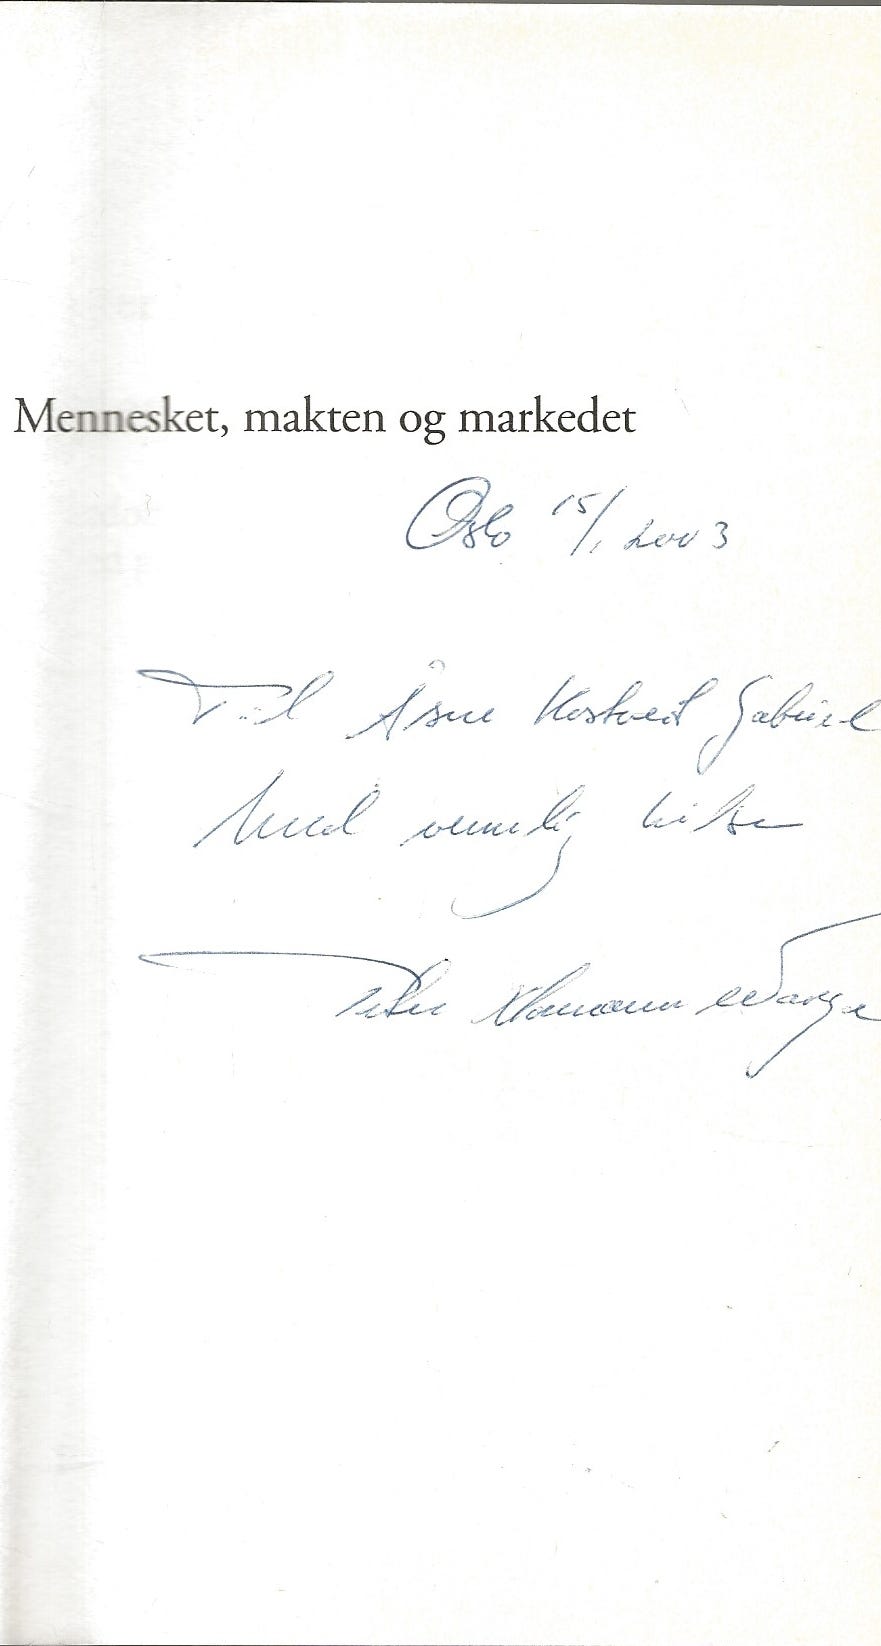 Mennesket, makten og markedet
Oslo 15/1 2003
Til Åsne Gabriel
Med vennlig hilsen
Peter Normann Waage